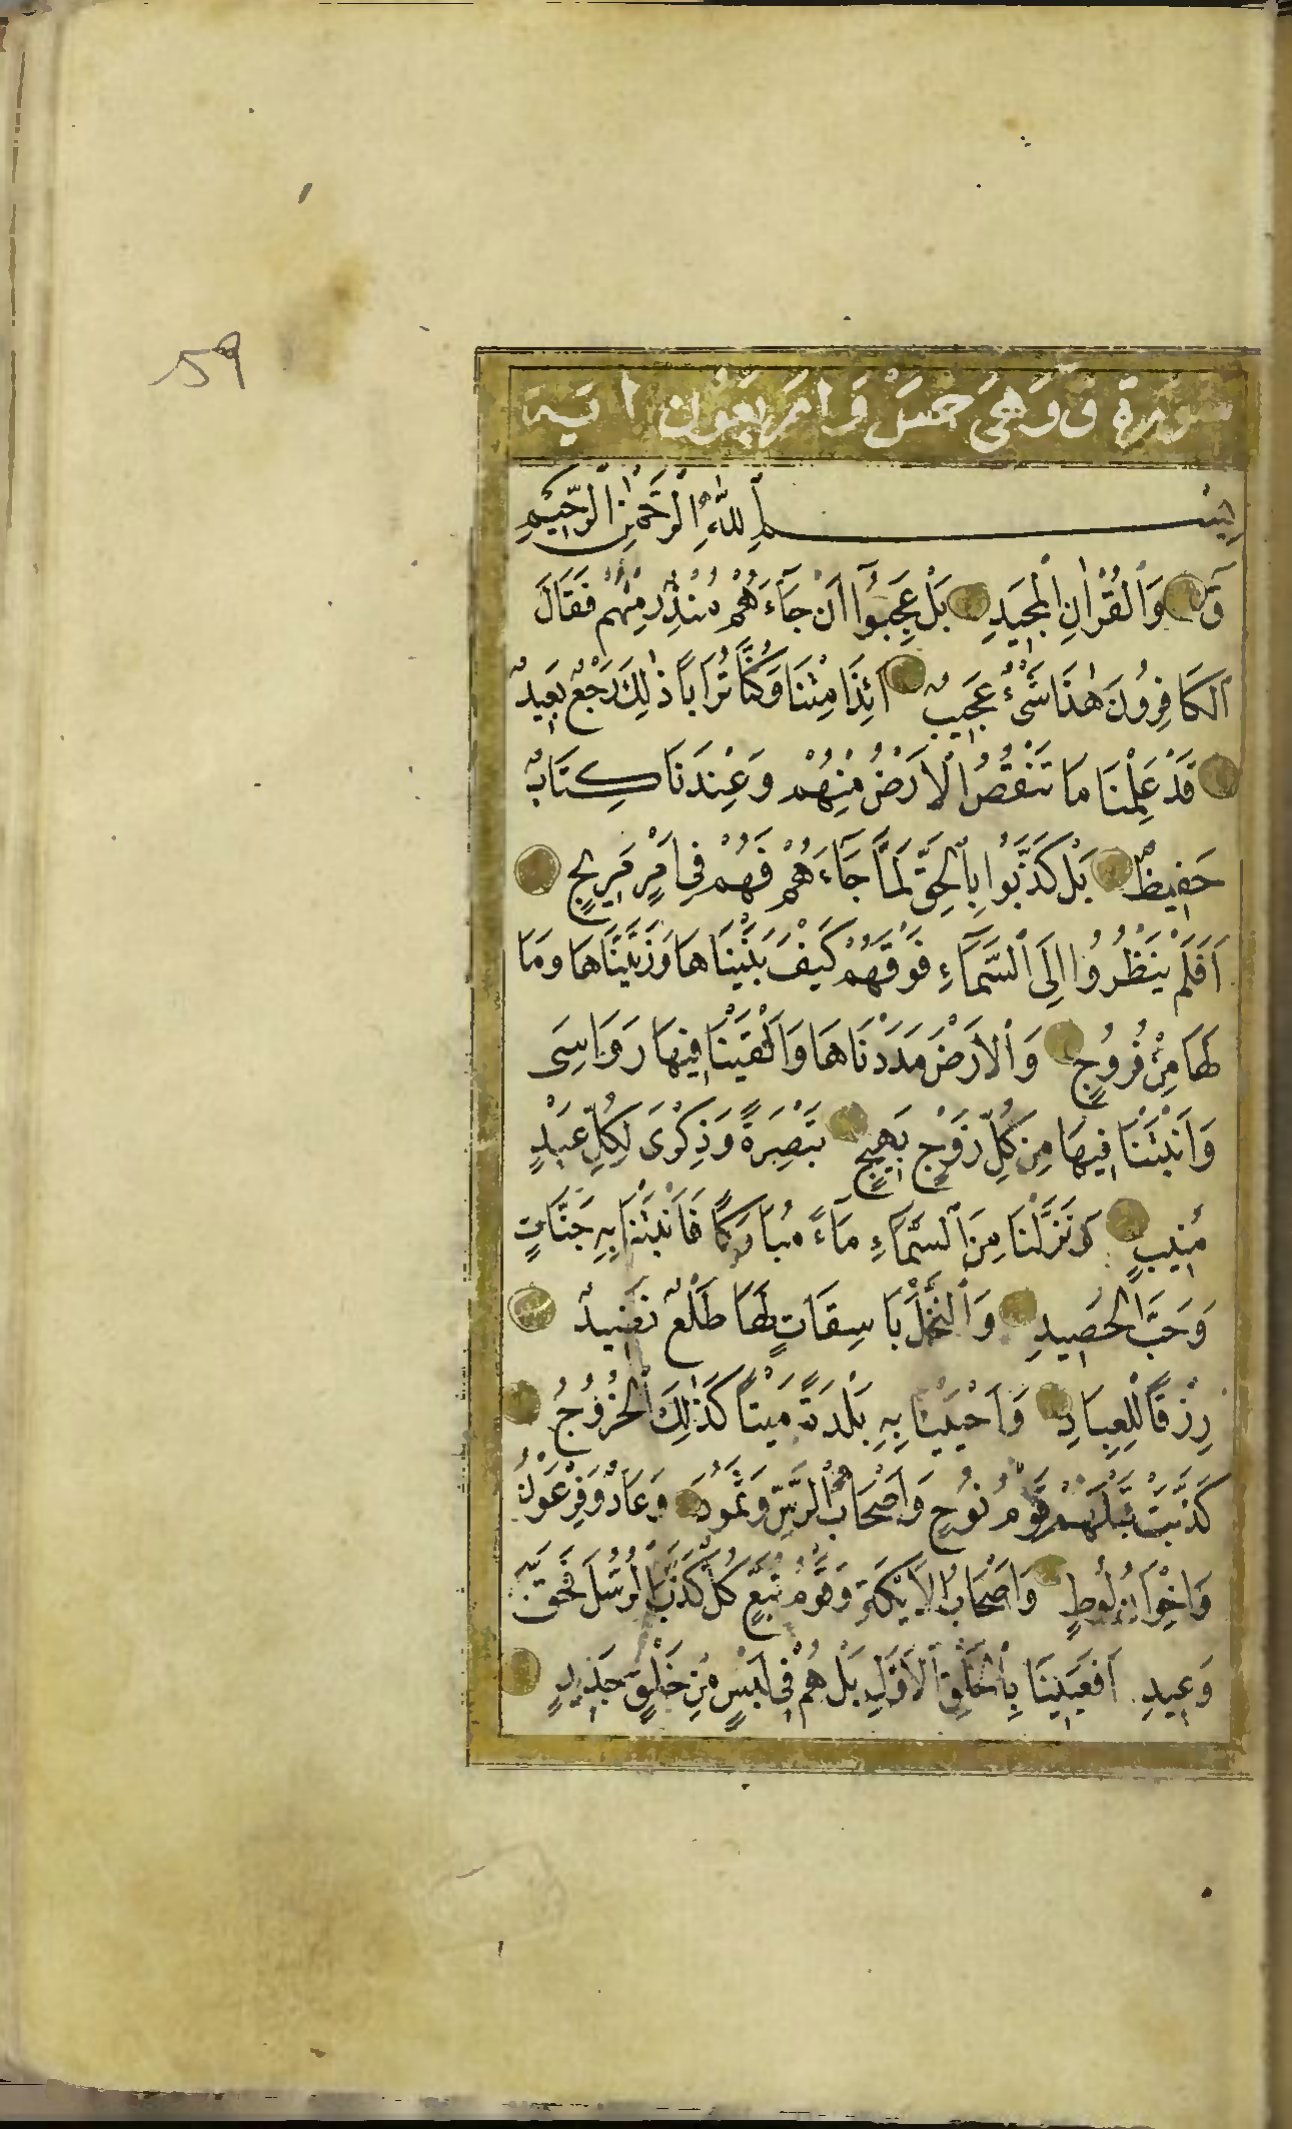 59
سورة ق وهى خمس واربعون اية
بِسْمِ ٱللّٰهِ ٱلرَّحْمٰنِ ٱلرَّحِيمِ
قٓ وَٱلْقُرْاٰنِ ٱلْمَجِيدِ بَلْ عَجِبُوٓا اَنْ جَآءَهُمْ مُنْذِرٌ مِنْهُمْ فَقَالَ
ٱلْكَافِرُونَ هٰذَا شَىْءٌ عَجِيبٌ اَئِذَا مِتْنَا وَكُنَّا تُرَابًا ذٰلِكَ رَجْعٌ بَعِيدٌ
قَدْ عَلِمْنَا مَا تَنْقُصُ ٱلْاَرْضُ مِنْهُمْ وَعِنْدَنَا كِتَابٌ
حَفِيظٌ بَلْ كَذَّبُوا بِٱلْحَقِّ لَمَّا جَآءَهُمْ فَهُمْ فِى اَمْرٍ مَرِيجٍ
اَفَلَمْ يَنْظُرُوا اِلَى ٱلسَّمَآءِ فَوْقَهُمْ كَيْفَ بَنَيْنَاهَا وَزَيَّنَّاهَا وَمَا
لَهَا مِنْ فُرُوجٍ وَٱلْاَرْضَ مَدَدْنَاهَا وَاَلْقَيْنَا فِيهَا رَوَاسِىَ
وَاَنْبَتْنَا فِيهَا مِنْ كُلِّ زَوْجٍ بَهِيجٍ تَبْصِرَةً وَذِكْرٰى لِكُلِّ عَبْدٍ
مُنِيبٍ وَنَزَّلْنَا مِنَ ٱلسَّمَآءِ مَآءً مُبَارَكًا فَاَنْبَتْنَا بِهِ جَنَّاتٍ
وَحَبَّ ٱلْحَصِيدِ وَٱلنَّخْلَ بَاسِقَاتٍ لَهَا طَلْعٌ نَضِيدٌ
رِزْقًا لِلْعِبَادِ وَاَحْيَيْنَا بِهِ بَلْدَةً مَيْتًا كَذٰلِكَ ٱلْخُرُوجُ
كَذَّبَتْ قَبْلَهُمْ قَوْمُ نُوحٍ وَاَصْحَابُ ٱلرَّسِّ وَثَمُودُ وَعَادٌ وَفِرْعَوْنُ
وَاِخْوَانُ لُوطٍ وَاَصْحَابُ ٱلْاَيْكَةِ وَقَوْمُ تُبَّعٍ كُلٌّ كَذَّبَ ٱلرُّسُلَ فَحَقَّ
وَعِيدِ اَفَعَيِينَا بِٱلْخَلْقِ ٱلْاَوَّلِ بَلْ هُمْ فِى لَبْسٍ مِنْ خَلْقٍ جَدِيدٍ